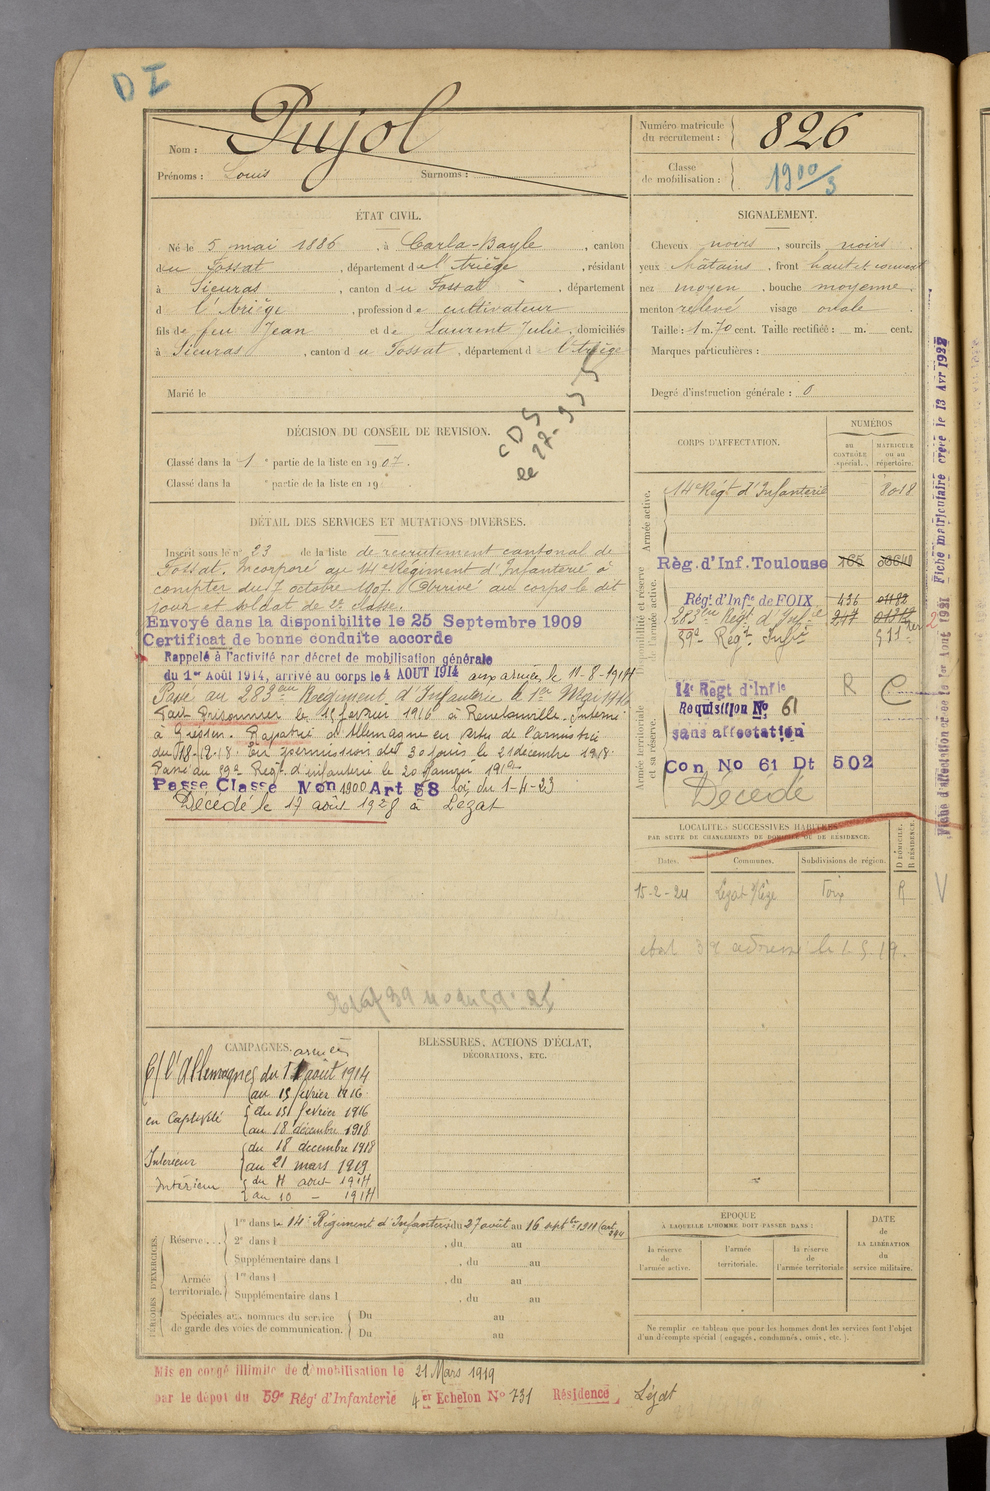 DI
Nom : Pujol
Prénoms : Louis Surnoms :
Numéro matricule du recrutement : 826
Classe de mobilisation : 1900/3
ÉTAT CIVIL.
Né le 5 mai 1886, à Carla-Bayle, canton
du Fossat, département de l'Ariège, résidant
à Sieuras, canton du Fossat, département
d l'Ariège, profession de cultivateur
fils de feu Jean et de Laurent Julie, domiciliés
à Sieuras, canton du Fossat, département de l'Ariège
Marié le
SIGNALEMENT.
Cheveux noirs, sourcils noirs.
yeux châtains, front haut et couvert
nez moyen, bouche moyenne
menton relevé visage ovale
Taille : 1 m. 70 cent. Taille rectifiée : m. cent.
Marques particulières :
Degré d'instruction générale : 0
DÉCISION DU CONSEIL DE REVISION.
Classé dans la 1e partie de la liste en 1907.
Classé dans la e partie de la liste en 19
CDS
le 27-95
DÉTAIL DES SERVICES ET MUTATIONS DIVERSES.
Inscrit sous le n° 23 de la liste de recrutement cantonal de
Fossat. Incorporé au 14e Régiment d'Infanterie à
compter du 7 octobre 1907. Arrivé au corps le dit
jour et soldat de 2e classe.
Envoyé dans la disponibilite le 25 Septembre 1909
Certificat de bonne conduite accorde
Rappelé à l'activité par décret de mobilisation générale
du 1er Août 1914, arrivé au corps le 4 AOUT 1914 aux armées le 11-8-1914
Passé au 283eme Régiment d'Infanterie le 1er Mai 1916
Fait Prisonnier le 15 février 1916 à Interné
à Giessen. Rapatrié d'Allemagne en vertu de l'armistice
du 18-12-18. En permission de 30 jours le 21 decembre 1918.
Passé au 59e Regt d'infanterie le 20 Janvier 1919
Passe Classe Mon 1900 Art 58 loi du 1-4-23
Décédé le 17 août 1928 à Lézat
CORPS D'AFFECTATION.
NUMÉROS
AU CONTRÔLE spécial.
MATRICULE ou au répertoire.
Armée active.
14e Régt d'Infanterie 8018
Disponibilité et réserve de l'armée active.
Règ. d'Inf. Toulouse
Régt d'Infie de FOIX 436
283eme Régt d'Infie
59e Régt Infie 511
Armée territoriale et sa réserve.
14e Regt d'Infie R C
Requisition No 61
sans affectation
Con No 61 Dt 502
Décédé
Fiche d'affectation créée le 1er Août 1921 Fiche matriculaire créée le 13 Avr 1922
LOCALITÉS SUCCESSIVES HABITÉES
PAR SUITE DE CHANGEMENTS DE DOMICILE OU DE RÉSIDENCE.
Dates. Communes. Subdivisions de région. D DOMICILE. R RÉSIDENCE.
15-2-24 Lézat Foix R
V
CAMPAGNES.
armées
C/ l'Allemagne du 11 août 1914
au 15 février 1916
en Captivité du 15 fevrier 1916
au 18 décembre 1918
Interieur du 18 decembre 1918
au 21 mars 1919
Intérieur du 4 aout 1914
au 10 — 1914
BLESSURES, ACTIONS D'ÉCLAT,
DÉCORATIONS, ETC.
PÉRIODES D'EXERCICES.
Réserve...
1re dans le 14e Régiment d'Infanterie du 27 août au 16 septbre 1911
2e dans l , du au
Supplémentaire dans l , du au
Armée territoriale.
1re dans l , du au
Supplémentaire dans l , du au
Spéciales aux hommes du service de garde des voies de communication.
Du au
Du au
EPOQUE
À LAQUELLE L'HOMME DOIT PASSER DANS :
la réserve de l'armée active.
l'armée territoriale.
la réserve de l'armée territoriale
DATE DE LA LIBÉRATION du service militaire.
Ne remplir ce tableau que pour les hommes dont les services font l'objet
d'un décompte spécial (engagés, condamnés, omis, etc.).
Mis en congé illimité de démobilisation le 21 Mars 1919
par le dépot du 59e Régt d'Infanterie 4er Echelon No 731 Résidence, Lézat